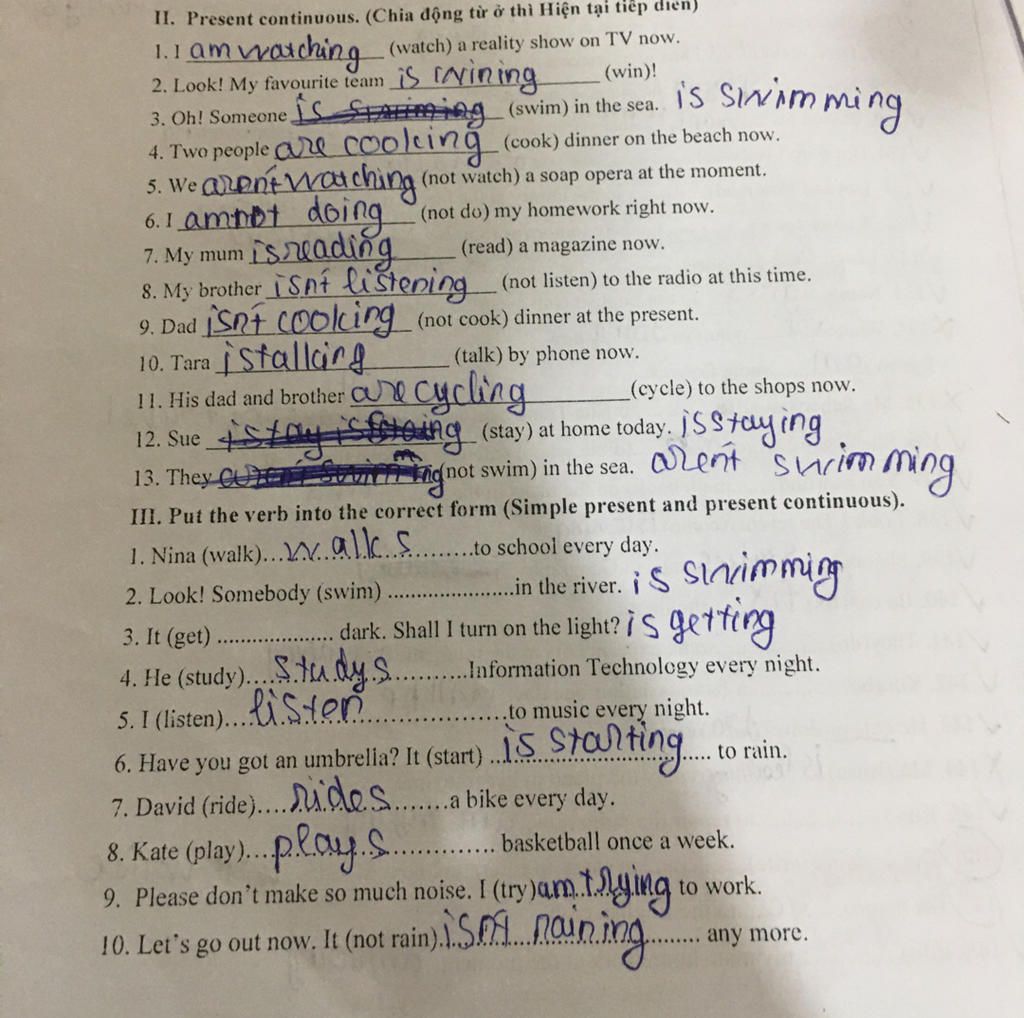 II. Present continuous. (Chia động từ ở thì Hiện tại tiếp diễn)
1. I am watching (watch) a reality show on TV now.
2. Look! My favourite team is wining (win)!
3. Oh! Someone is swiming (swim) in the sea. is swimming
4. Two people are cooking (cook) dinner on the beach now.
5. We aren't watching (not watch) a soap opera at the moment.
6. I am not doing (not do) my homework right now.
7. My mum is reading (read) a magazine now.
8. My brother isn't listening (not listen) to the radio at this time.
9. Dad isn't cooking (not cook) dinner at the present.
10. Tara is talking (talk) by phone now.
11. His dad and brother are cycling (cycle) to the shops now.
12. Sue (stay) at home today. is staying
13. They (not swim) in the sea. aren't swimming
III. Put the verb into the correct form (Simple present and present continuous).
1. Nina (walk)...walks.........to school every day.
2. Look! Somebody (swim) ......................in the river. is swimming
3. It (get) .................... dark. Shall I turn on the light? is getting
4. He (study)....studys...........Information Technology every night.
5. I (listen)...listen.........................to music every night.
6. Have you got an umbrella? It (start) ..is starting..... to rain.
7. David (ride)....rides.......a bike every day.
8. Kate (play)...plays.............. basketball once a week.
9. Please don't make so much noise. I (try) am trying to work.
10. Let's go out now. It (not rain).isn't raining......... any more.